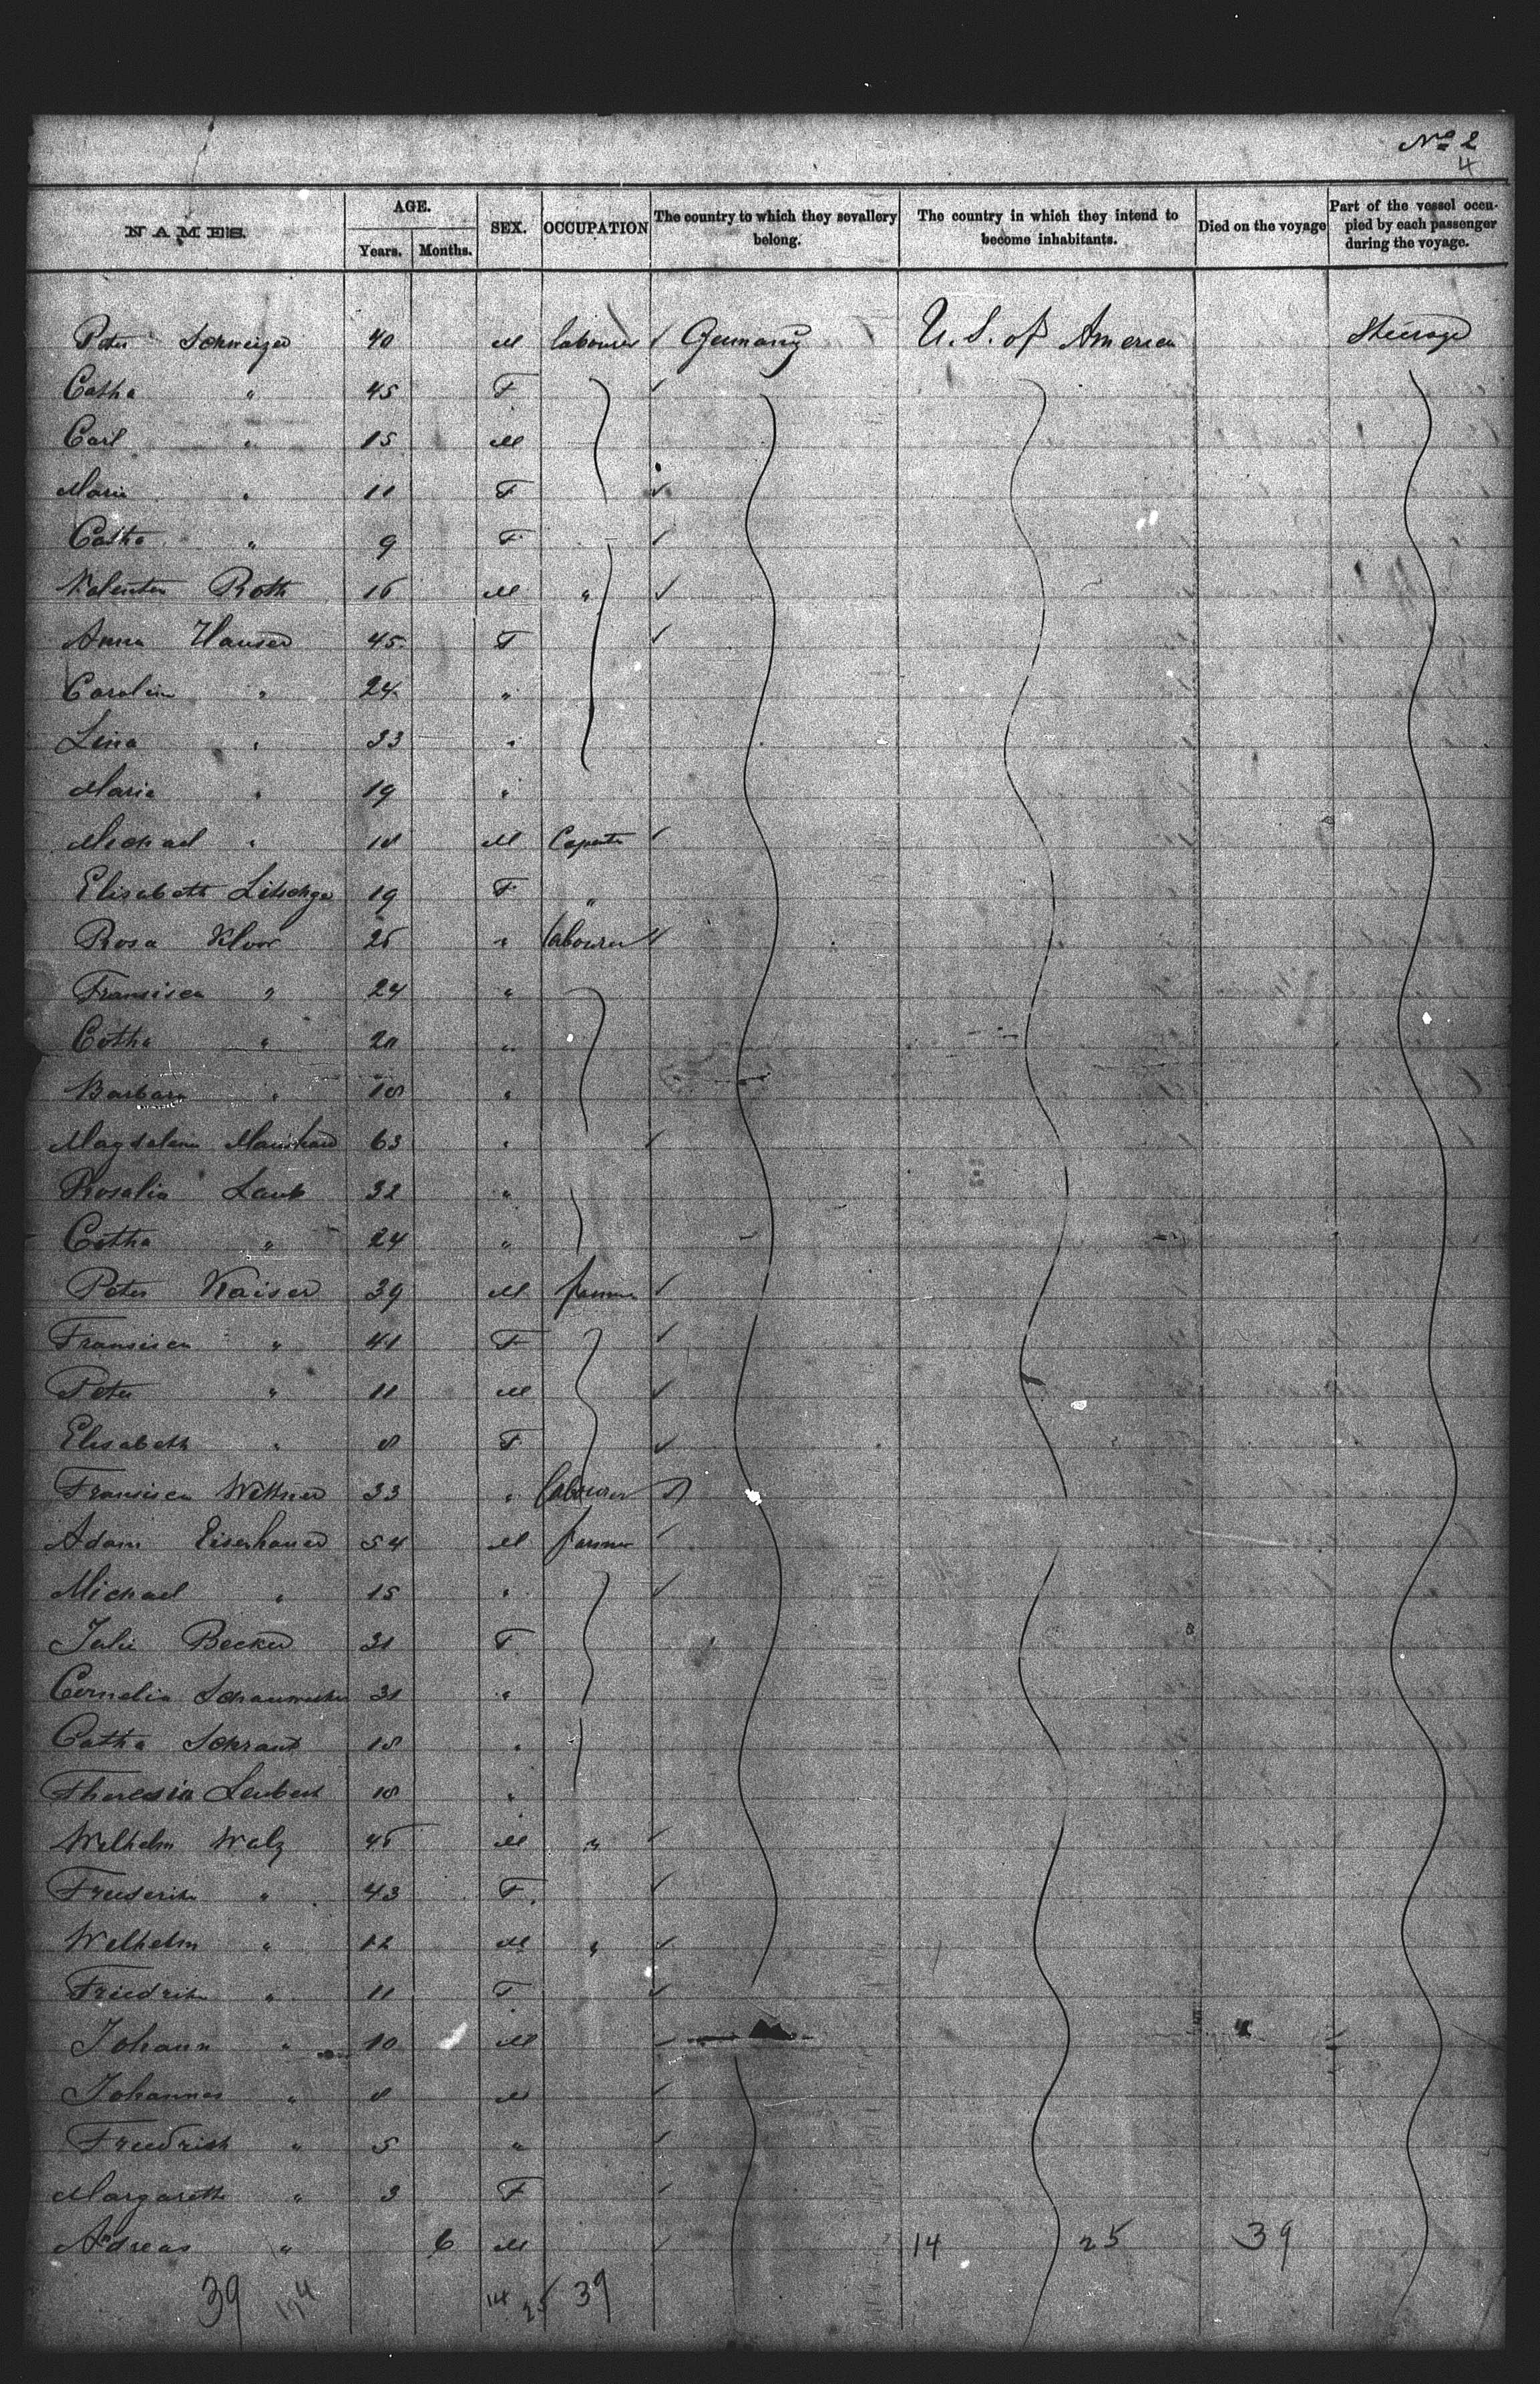 No 2
4
NAMES. AGE. Years. Months. SEX. OCCUPATION The country to which they sevallery belong. The country in which they intend to become inhabitants. Died on the voyage Part of the vessel occupied by each passenger during the voyage.
Peter Schweizer 40 M labourer ✓ Germany U. S. of America Steerage
Catha " 45 F ✓
Carl " 15 M
Maria " 11 F ✓
Catha " 9 F ✓
Valentin Roth 16 M " ✓
Anna Hauser 45 F ✓
Carolina " 24 "
Lina " 23 "
Maria " 19 "
Michael " 18 M ✓
Elisabeth 19 F "
Rosa Kloor 25 " labourer ✓
Fransisca " 24 "
Catha " 20 "
Barbara " 18 "
Magdalena 63 " ✓
Rosalia Laub 32 "
Catha " 24 "
Peter Kaiser 39 M farmer ✓
Fransisca " 41 F ✓
Peter " 11 M ✓
Elisabeth " 8 F ✓
Fransisca 33 " labourer
Adam Eisenhauer 54 M farmer ✓
Michael " 15 " ✓
Julie Becker 31 F
Cornelia Schaumacher 31 "
Catha Schraut 18 "
Theresia Leubert 18 "
Wilhelm Walz 45 M " ✓
Friederike " 43 F ✓
Wilhelm " 12 M " ✓
Friedrike " 11 F ✓
Johann " 10 M ✓
Johannes " 8 M ✓
Friedrich " 5 " ✓
Margareth " 3 F ✓
Andreas " 6 M ✓ 14 25 39
39 14 25 39